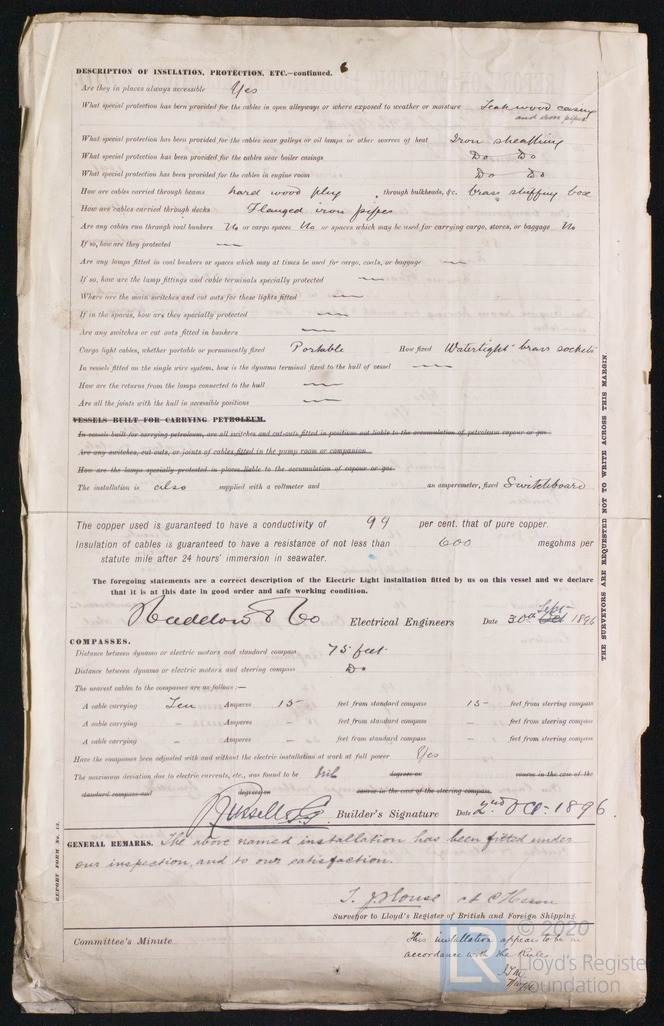 DESCRIPTION OF INSULATION, PROTECTION, ETC.—continued. 6
Are they in places always accessible Yes
What special protection has been provided for the cables in open alleyways or where exposed to weather or moisture Teak wood casing
and iron pipes
What special protection has been provided for the cables near galleys or oil lamps or other sources of heat Iron sheathing
What special protection has been provided for the cables near boiler casings Do Do
What special protection has been provided for the cables in engine room Do Do
How are cables carried through beams hard wood plug , through bulkheads, &c. brass stuffing box
How are cables carried through decks Flanged iron pipes
Are any cables run through coal bunkers No or cargo spaces No or spaces which may be used for carrying cargo, stores, or baggage No
If so, how are they protected —
Are any lamps fitted in coal bunkers or spaces which may at times be used for cargo, coals, or baggage —
If so, how are the lamp fittings and cable terminals specially protected —
Where are the main switches and cut outs for these lights fitted —
If in the spaces, how are they specially protected —
Are any switches or cut outs fitted in bunkers —
Cargo light cables, whether portable or permanently fixed Portable How fixed Watertight brass sockets
In vessels fitted on the single wire system, how is the dynamo terminal fixed to the hull of vessel —
How are the returns from the lamps connected to the hull —
Are all the joints with the hull in accessible positions —
VESSELS BUILT FOR CARRYING PETROLEUM.
In vessels built for carrying petroleum, are all switches and cut-outs fitted in positions not liable to the accumulation of petroleum vapour or gas
Are any switches, cut outs, or joints of cables fitted in the pump room or companion
How are the lamps specially protected in places liable to the accumulation of vapour or gas
The installation is also supplied with a voltmeter and an amperemeter, fixed Switchboard
The copper used is guaranteed to have a conductivity of 99 per cent. that of pure copper.
Insulation of cables is guaranteed to have a resistance of not less than 600 megohms per
statute mile after 24 hours' immersion in seawater.
The foregoing statements are a correct description of the Electric Light installation fitted by us on this vessel and we declare
that it is at this date in good order and safe working condition.
Haddow & Co Electrical Engineers Date 30th Oct Sept 1896
COMPASSES.
Distance between dynamo or electric motors and standard compass 75 feet
Distance between dynamo or electric motors and steering compass Do
The nearest cables to the compasses are as follows:—
A cable carrying Ten Amperes 15 feet from standard compass 15 feet from steering compass
A cable carrying - Amperes - feet from standard compass - feet from steering compass
A cable carrying - Amperes - feet from standard compass - feet from steering compass
Have the compasses been adjusted with and without the electric installation at work at full power Yes
The maximum deviation due to electric currents, etc., was found to be Nil degrees on course in the case of the
standard compass and degrees on course in the case of the steering compass.
Russell & Co. Builder's Signature Date 2nd Oct. 1896.
GENERAL REMARKS. The above named installation has been fitted under
our inspection, and to our satisfaction.
Surveyor to Lloyd's Register of British and Foreign Shipping.
Committee's Minute
This installation appears to be in
accordance with the Rules
THE SURVEYORS ARE REQUESTED NOT TO WRITE ACROSS THIS MARGIN.
REPORT FORM No. 13.
© 2020
LR
Lloyd's Register
Foundation